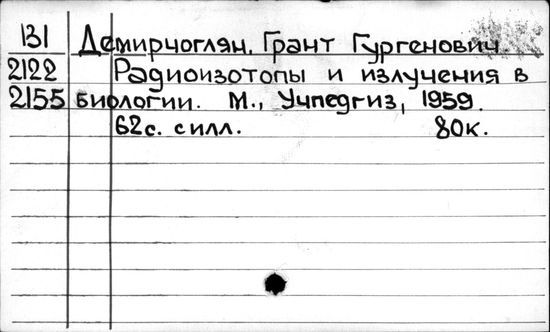 131 Демирчоглян, Грант Гургенович.
2122 Радиоизотопы и излучения в
2155 биологии. М., Учпедгиз, 1959.
62с. силл. 80к.